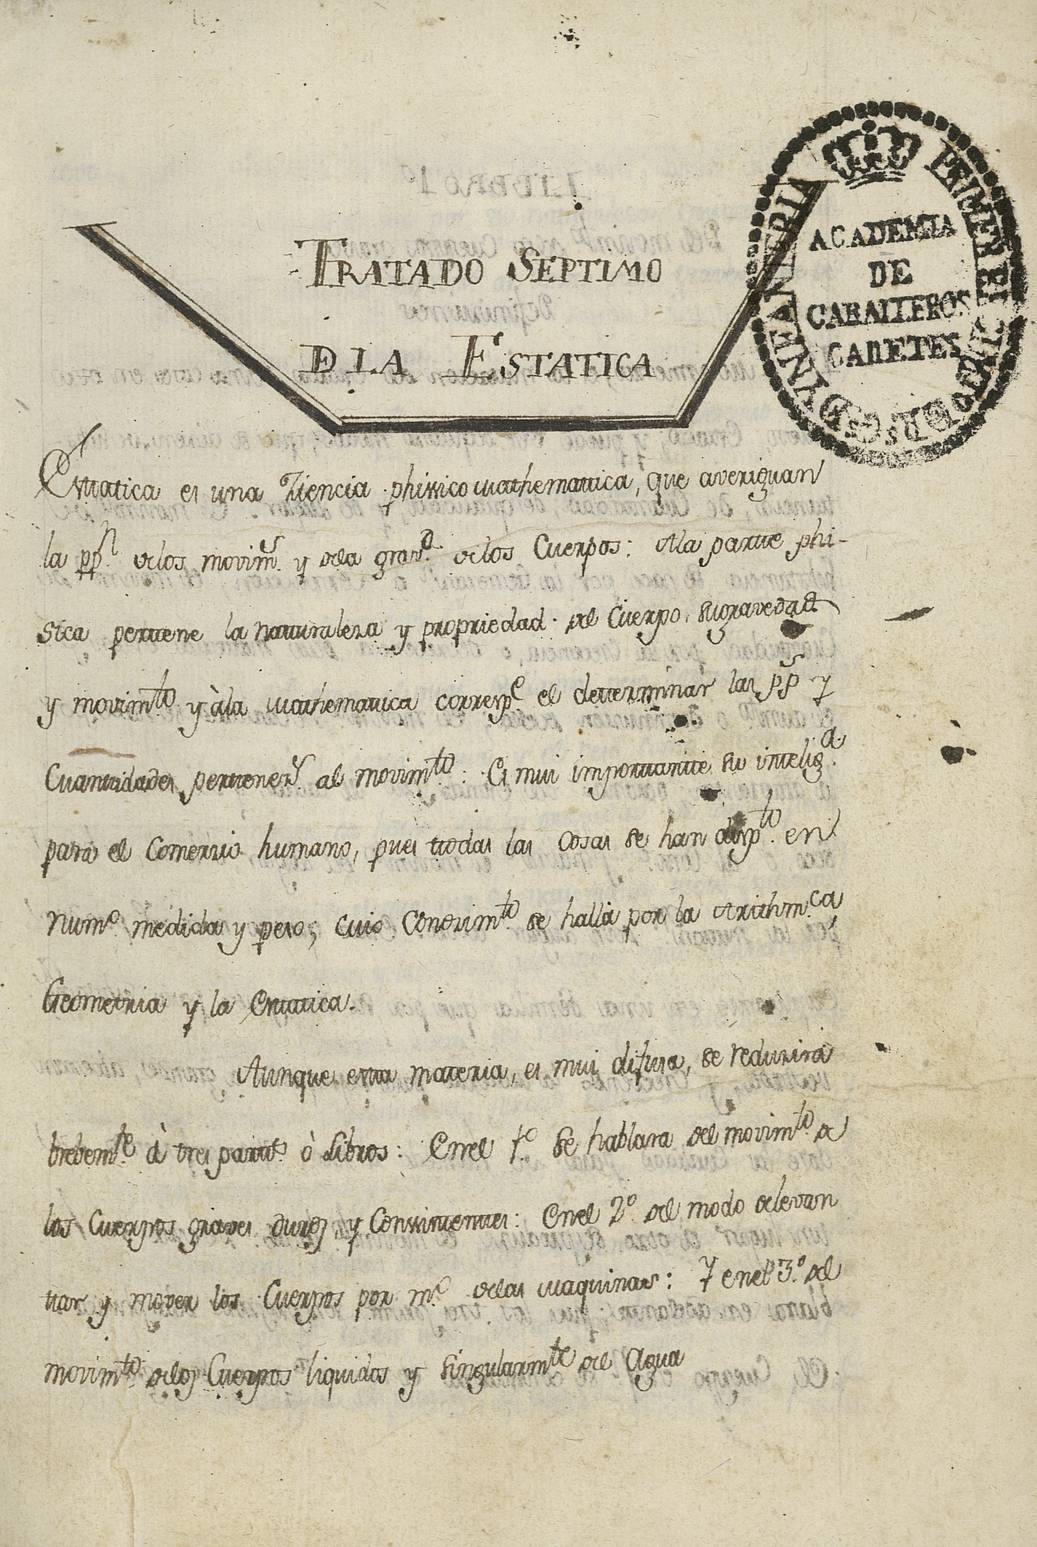 TRATADO SEPTIMO
D LA ESTATICA
PRIMER REGIMTO. D INFANTERIA
ACADEMIA
DE
CABALLEROS
CADETES
Estatica es una Ziencia phissico mathematica, que averiguan
la pp.n delos movim.s y dela grav.d delos Cuerpos: Ala parte phi-
sica pertene la naturaleza y propriedad del Cuerpo, su gravedad
y movim.to y àla mathematica corresp.e el determinar las pp.s y
Cuantidades pertenez.s al movim.to: Es mui importante su intelig.a
para el Comerzio humano, pues todas las Cosas se han disp.to en
Num.o medida y peso; cuio Conozim.to se halla por la Arithm.ca
Geometria y la Estatica.
Aunque esta materia, es mui difusa, se reduzira
brebem.te à tres part.s ò Libros: Enel 1.o Se hablara del movim.to de
los Cuerpos graves duros y Consistentes: Enel 2.o del modo de levan
tar y mover los Cuerpos por m.o delas maquinas: Y enel 3.o del
movim.to delos Cuerpos liquidos y Singularm.te del Agua